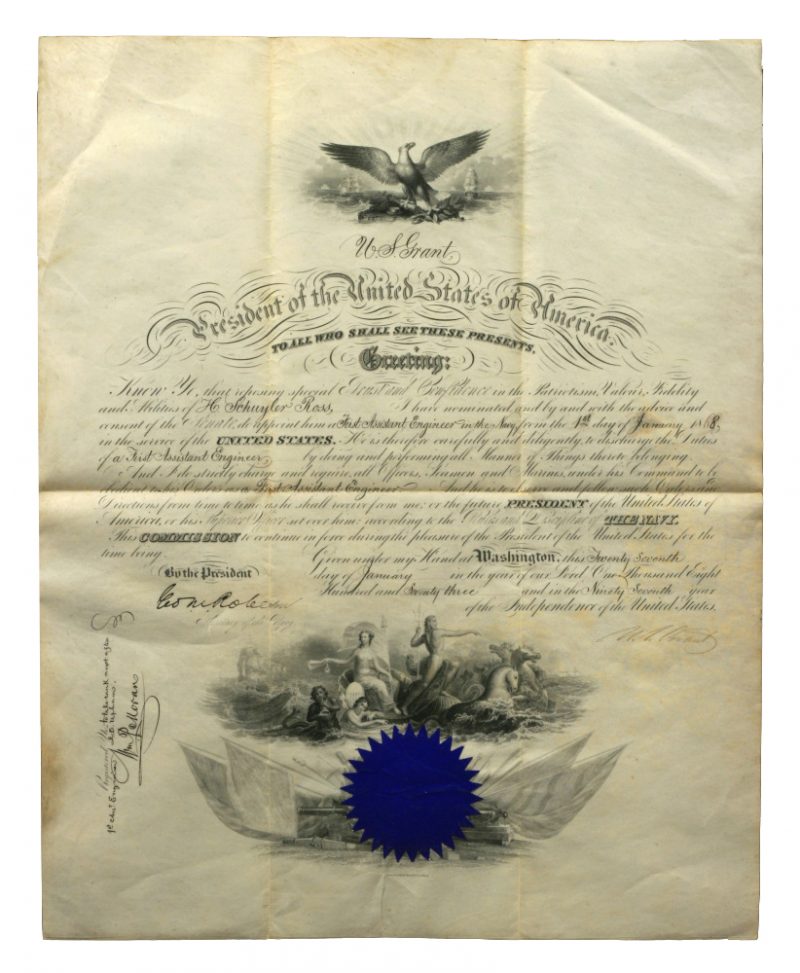 U.S. Grant,
President of the United States of America.
TO ALL WHO SHALL SEE THESE PRESENTS,
Greeting:
Know Ye, that reposing special Trust and Confidence in the Patriotism, Valour, Fidelity
and Abilities of H. Schuyler Ross, I have nominated and by and with the advice and
consent of the Senate, do appoint him a First Assistant Engineer in the Navy from the 1st day of January 1868,
in the service of the UNITED STATES. He is therefore carefully and diligently to discharge the Duties
of a First Assistant Engineer by doing and performing all Manner of Things thereto belonging.
And I do strictly charge and require all Officers, Seamen and Marines, under his Command to be
obedient to his Orders as a First Assistant Engineer. And he is to observe and follow such Orders and
Directions from time to time as he shall receive from me, or the future PRESIDENT of the United States of
America, or his Superior Officer set over him, according to the Rules and Discipline of THE NAVY.
This COMMISSION to continue in force during the pleasure of the President of the United States for the
time being.
Given under my Hand at Washington, this Twenty Seventh
By the President
day of January in the year of our Lord One Thousand Eight
Hundred and Seventy three and in the Ninety Seventh year
of the Independence of the United States.
Geo M Robeson
Secretary of the Navy
U.S. Grant
Registered
to take rank next after
Wm P. Moran